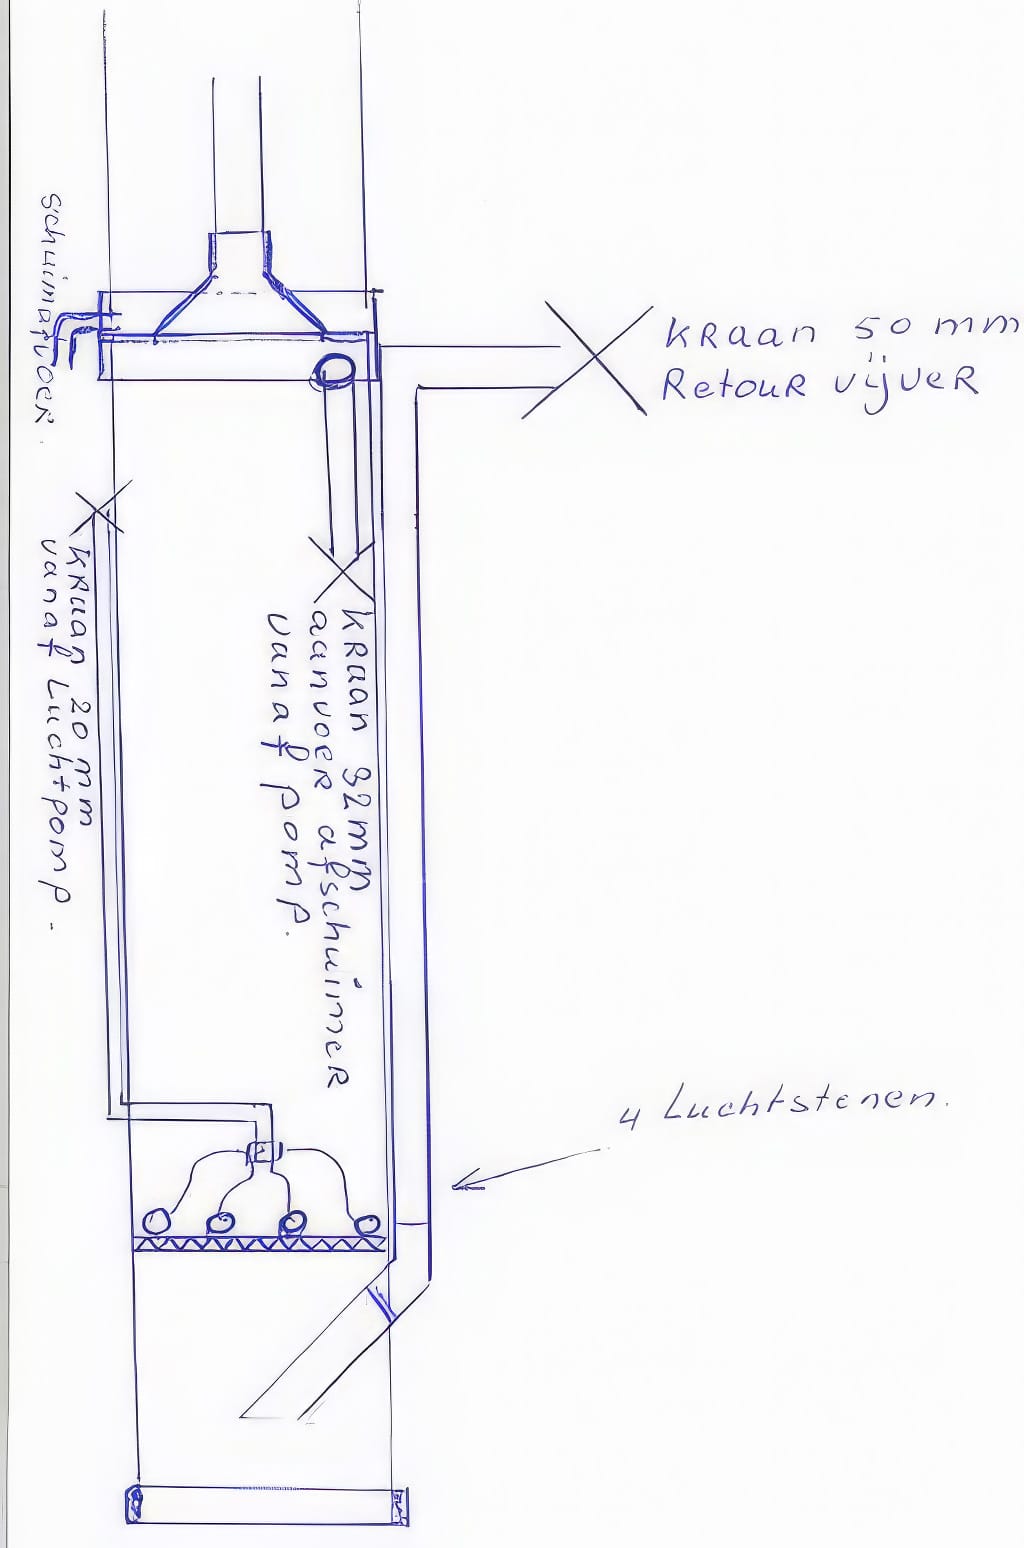 schuimafvoer.
KRaan 50 mm
Retour vijver
KRaan 20 mm
vanaf Luchtpomp.
KRaan 32 mm
aanvoer afschuimer
vanaf pomp.
4 Luchtstenen.